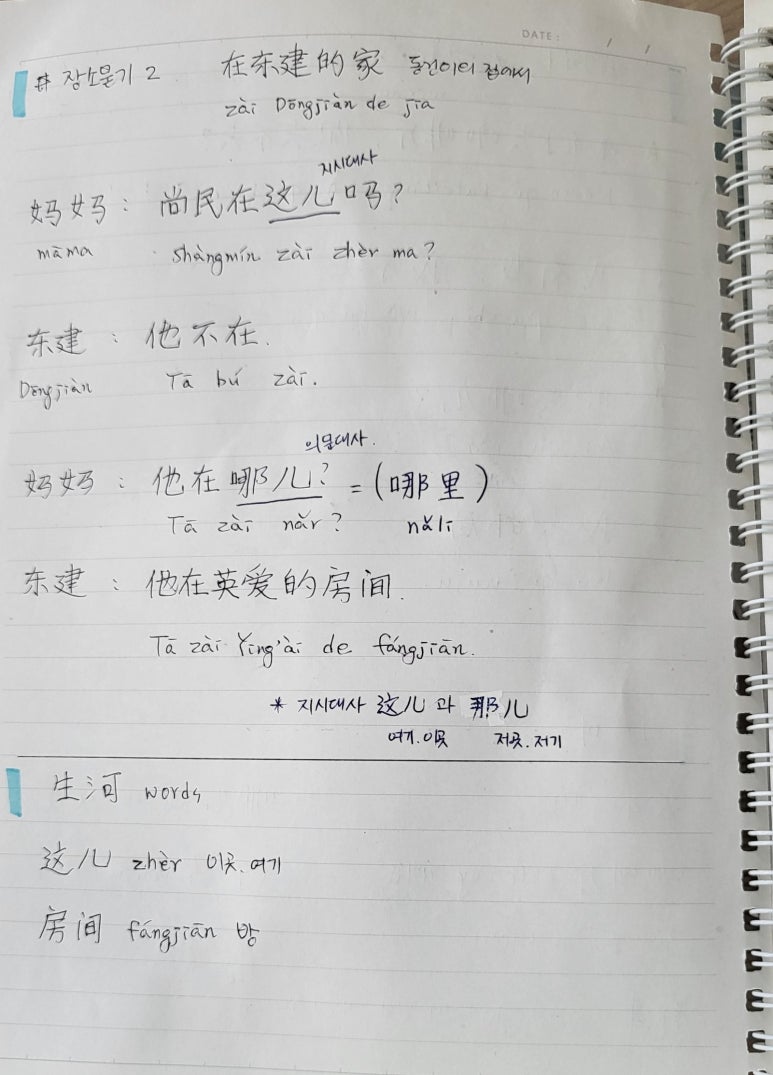 DATE: / /
# 장소묻기 2 在东建的家 동건이의 집에서
zài Dōngjiàn de jīa
지시대사
妈妈 : 尚民在这儿吗?
māma shàngmín zài zhèr ma?
东建 : 他不在.
Dōngjiàn Tā bú zài.
의문대사.
妈妈 : 他在哪儿? = (哪里)
Tā zài nǎr? nǎlī
东建 : 他在英爱的房间.
Tā zài Yīng'ài de fángjiān.
* 지시대사 这儿 과 那儿
여기.이곳 저곳.저기
生河 words
这儿 zhèr 이곳.여기
房间 fángjiān 방